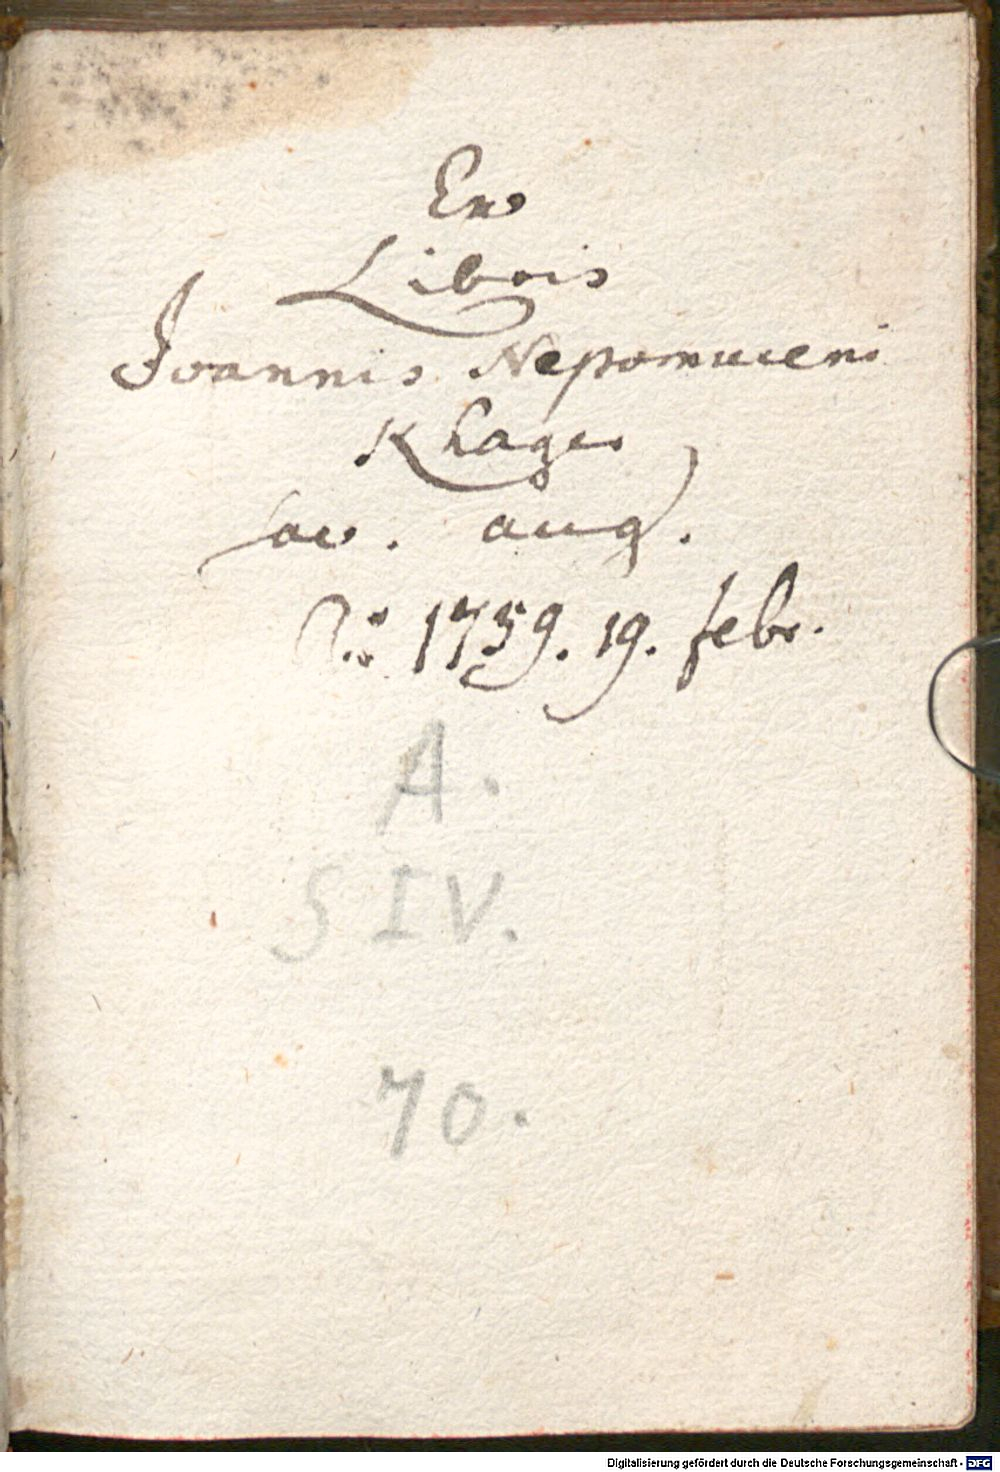 Ex
Libris
Joannis Nepomuceni
Khager
aug.
Ao: 1759. 19. febr.
A.
S IV.
70.
Digitalisierung gefördert durch die Deutsche Forschungsgemeinschaft - DFG